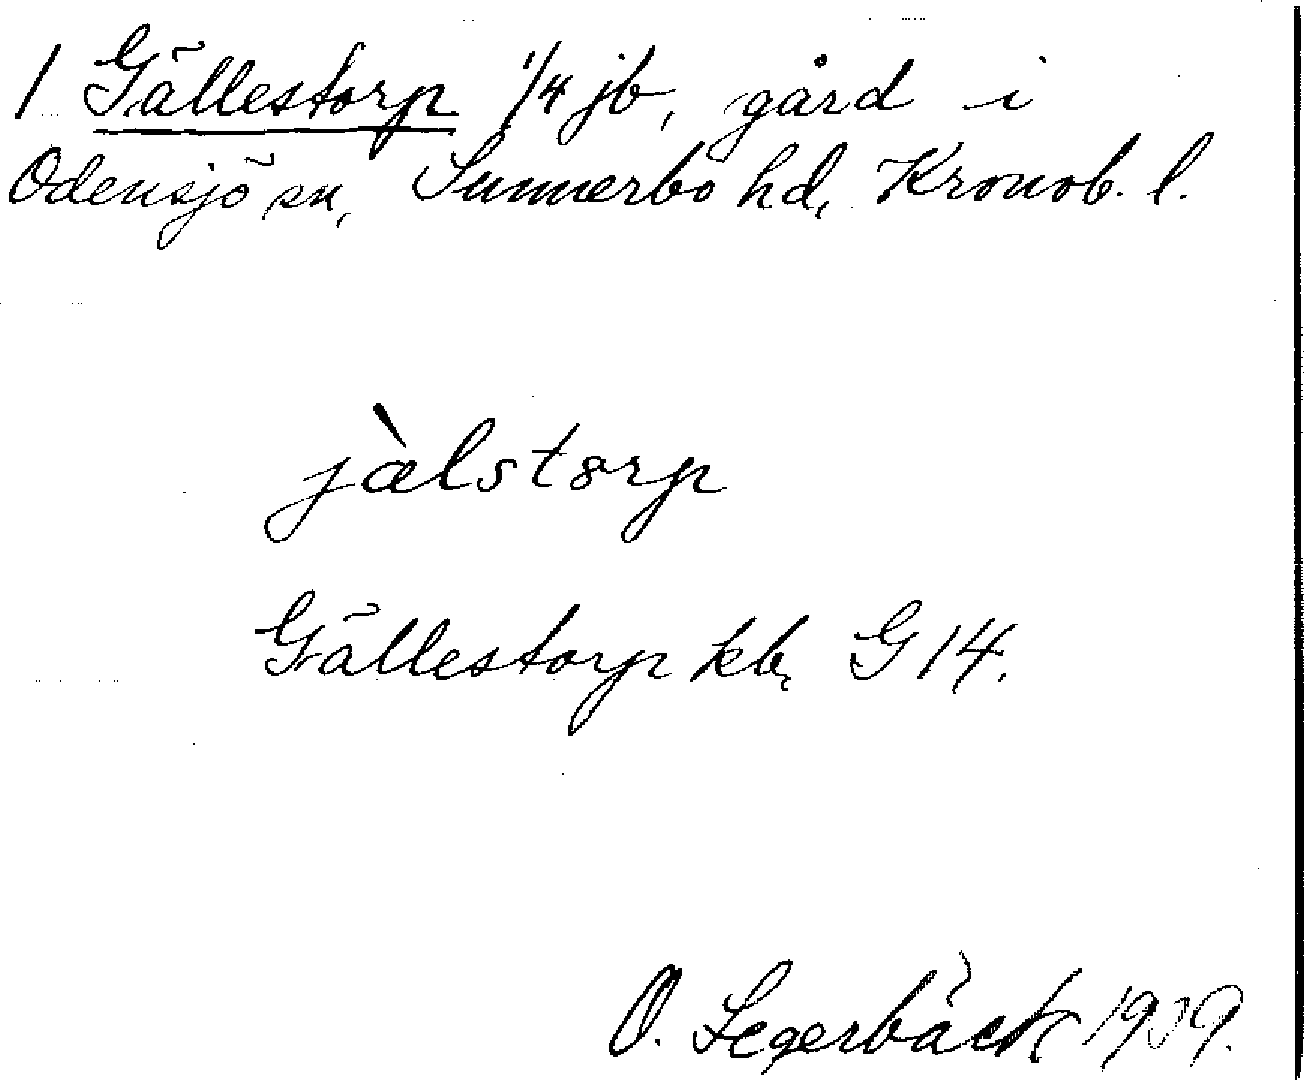 1 Gällestorp 1/4 jb, gård i
Odensjö sn, Sunnerbo hd, Kronob. l.
jæ̀lstorp
Gällestorp kb, G 14.
O. Segerbäck 1939.